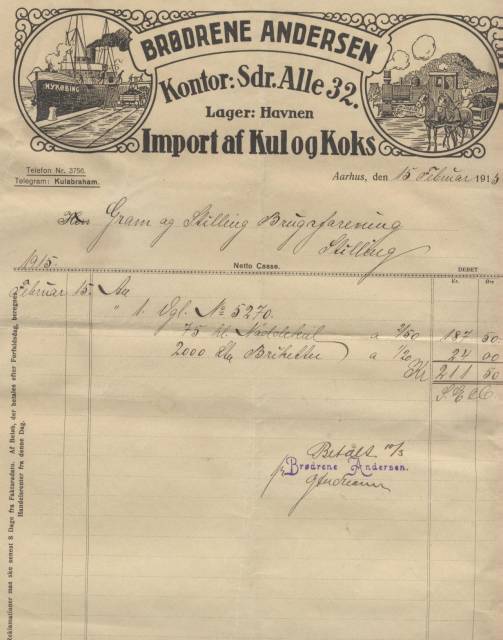 NYKØBING
BRØDRENE ANDERSEN
Kontor: Sdr. Alle 32.
Lager: Havnen
Import af Kul og Koks
Telefon Nr. 3756.
Telegram: Kulabraham.
Aarhus, den 15 Februar 1915
Herr Gram og Stilling Brugsforening
Stilling
1915
Netto Cassa.
DEBET
Kr. Øre
Februar 15. An
" 1 Vgl. No 5270.
75 hl a 2/50 187 50
2000 Briketter a 1/20 24 00
Kr 211 50
Betalt 10/3
Brødrene Andersen.
Reklamationer maa ske senest 8 Dage fra Fakturadato. Af Beløb, der betales efter Forfaldsdag, beregnes
Handelsrenter fra denne Dag.